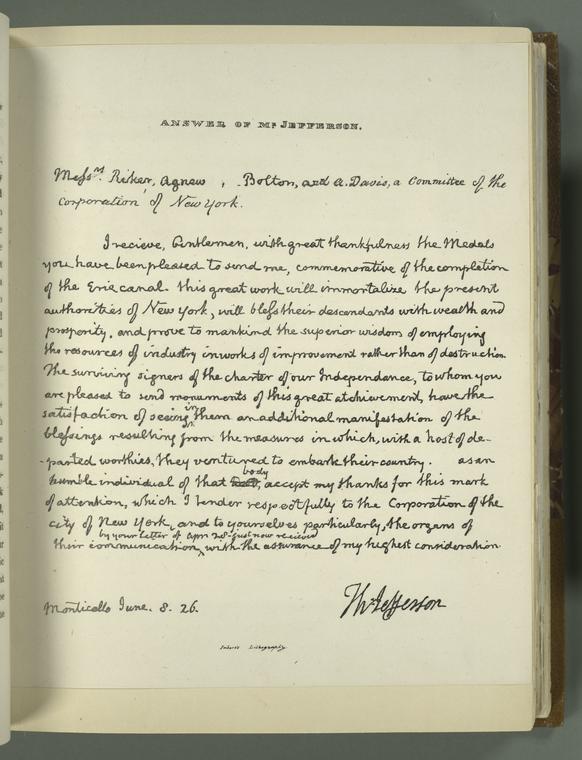 ANSWER OF Mr. JEFFERSON.
Messrs. Riker, Agnew, Bolton, and A. Davis, a Committee of the
Corporation of New York.
I recieve, Gentlemen, with great thankfulness the Medals
you have been pleased to send me, commemorative of the completion
of the Erie canal. this great work will immortalize the present
authorities of New York, will bless their descendants with wealth and
prosperity, and prove to mankind the superior wisdom of employing
the resources of industry in works of improvement rather than of destruction.
The surviving signers of the charter of our Independance, to whom you
are pleased to send monuments of this great atchievement, have the
satisfaction of seeing in them an additional manifestation of the
blessings resulting from the measures in which, with a host of de-
-parted worthies, they ventured to embark their country. as an
humble individual of that body, accept my thanks for this mark
of attention, which I tender respectfully to the Corporation of the
city of New York, and to yourselves particularly, the organs of
by your letter of Apr. 28. just now recieved
their communication, with the assurance of my highest consideration
Th: Jefferson
Monticello June. 8. 26.
Lithography